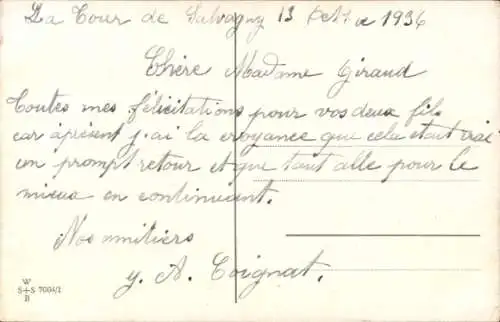 La Tour de Salvagny 13 Octobre 1936
Chère Madame Giraud
Toutes mes félicitations pour vos deux fils
car àprésent j'ai la croyance que cela était vrai
un prompt retour et que tout alle pour le
mieux en continuant.
Nos amitiers
y. A. Coignat.
W
S+S 7004/1
B